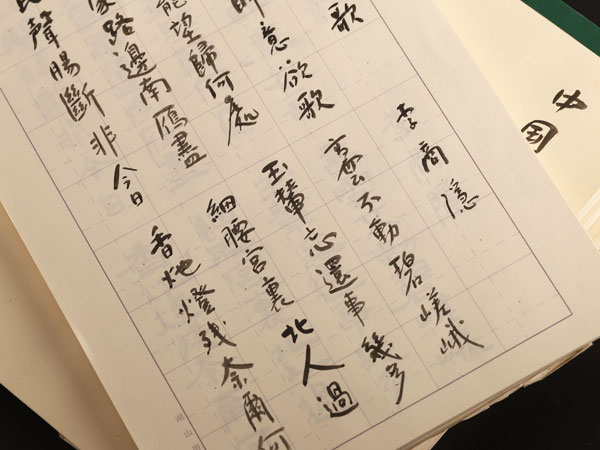 中国
歌 李商隱
意欲歌 高雲不動碧嵯峨
罷望歸何處 玉輦忘還事幾多
路邊南鴈盡 細腰宮裏北人過
聲腸斷非今日 香灺燈残奈爾何